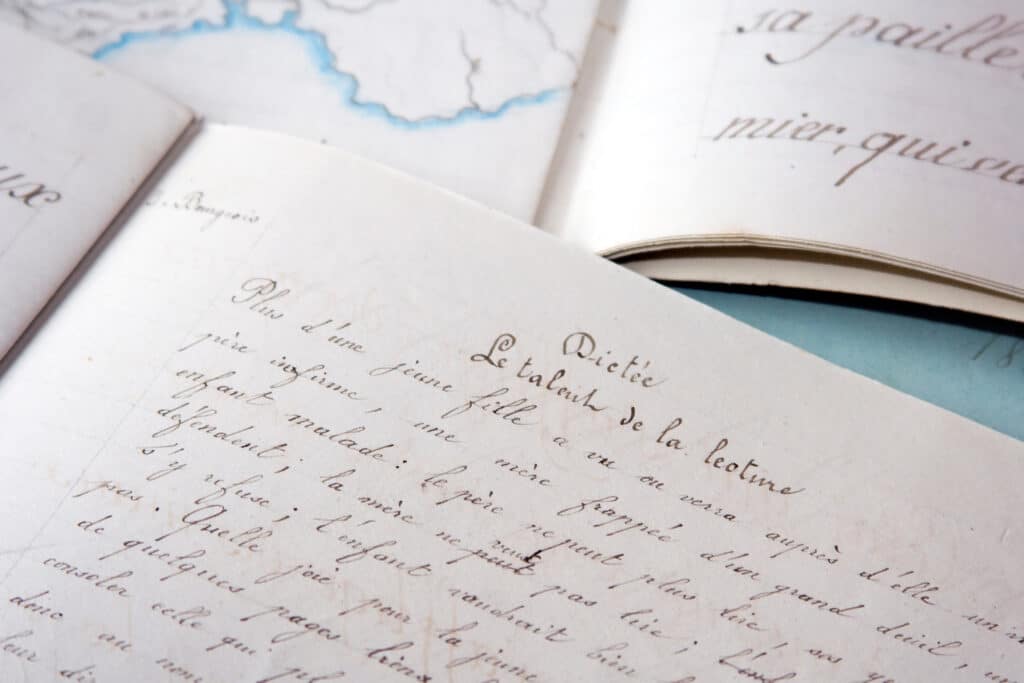 sa paille
mier, qui
ux
Bourgeois
Dictée
Le talent de la lecture
Plus d'une jeune fille a vu ou verra auprès d'elle un
père infirme, une mère frappée d'un grand deuil, un
enfant malade: le père ne peut plus lire, ses y
défendent; la mère ne veut peut pas lire;
s'y refuse; l'enfant voudrait bien
pas. Quelle joie pour la jeune
de quelques pages lues
consoler celle qui
donc au nom
leur di